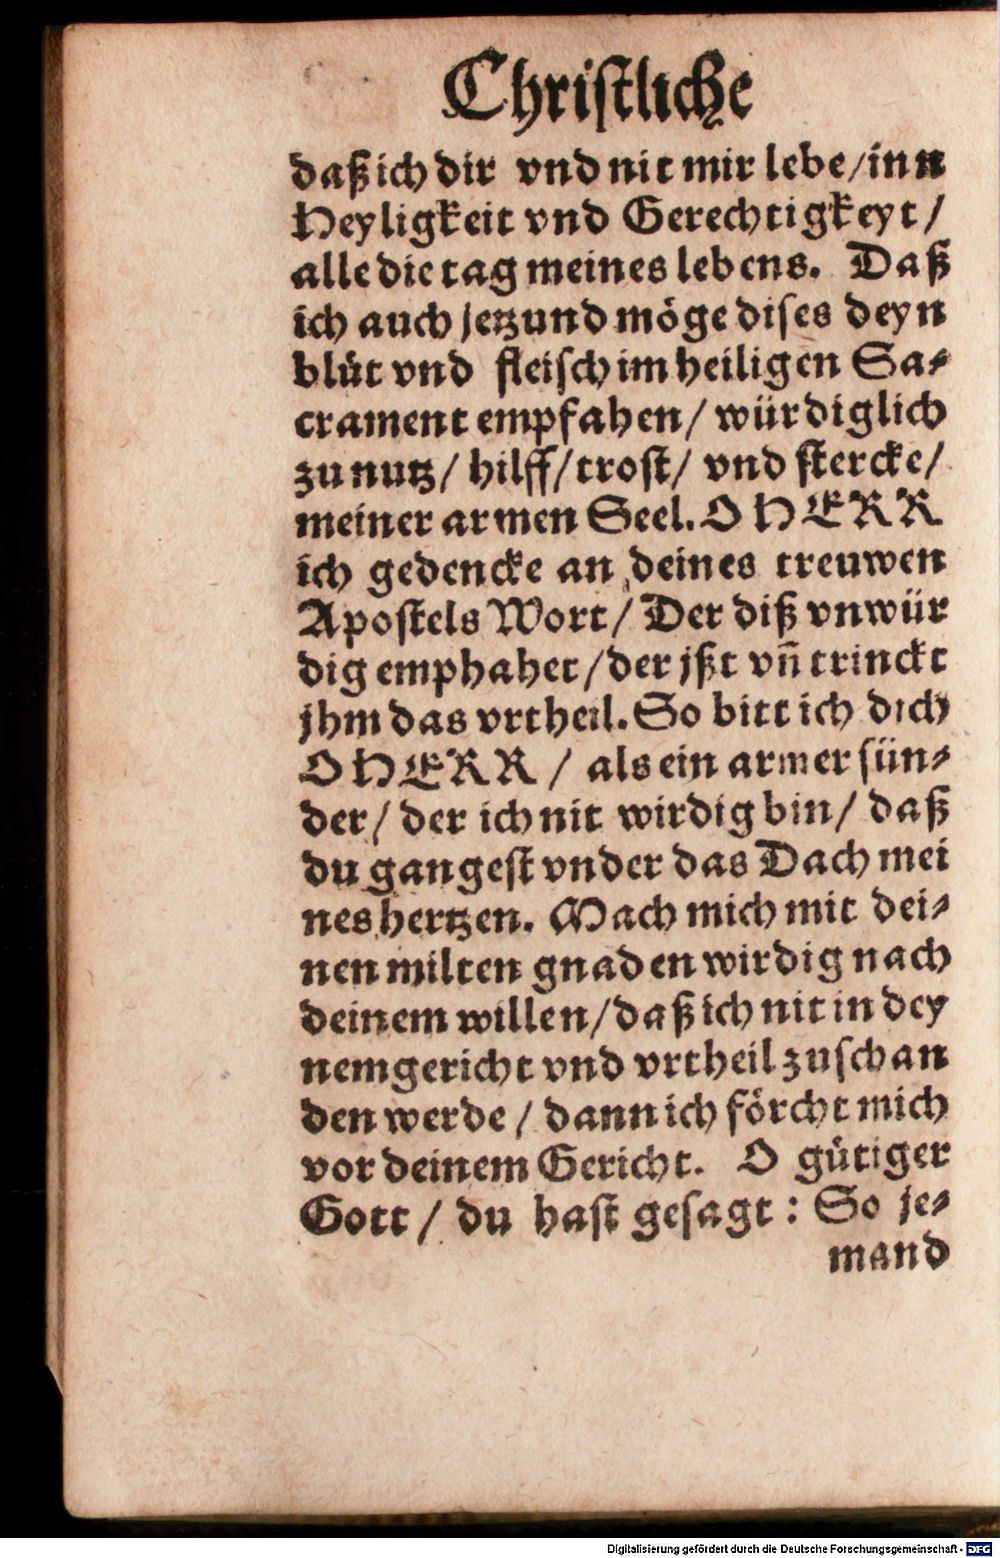 Chriſtliche
daß ich dir vnd nit mir lebe/inn
Heyligkeit vnd Gerechtigkeyt/
alle die tag meines lebens. Daß
ich auch jetzund möge diſes deyn
blůt vnd fleiſch im heiligen Sa⸗
crament empfahen/ würdiglich
zu nutz/ hilff/ troſt/ vnd ſtercke/
meiner armen Seel. O HERR
ich gedencke an deines treuwen
Apoſtels Wort/ Der diß vnwür
dig emphahet/der jßt vñ trinckt
jhm das vrtheil. So bitt ich dich
O HERR / als ein armer ſün⸗
der/ der ich nit wirdig bin/ daß
du gangeſt vnder das Dach mei
nes hertzen. Mach mich mit dei⸗
nen milten gnaden wirdig nach
deinem willen/daß ich nit in dey
nem gericht vnd vrtheil zuſchan
den werde / dann ich förcht mich
vor deinem Gericht. O gütiger
Gott / du haſt geſagt : So je⸗
mand
Digitalisierung gefördert durch die Deutsche Forschungsgemeinschaft - DFG